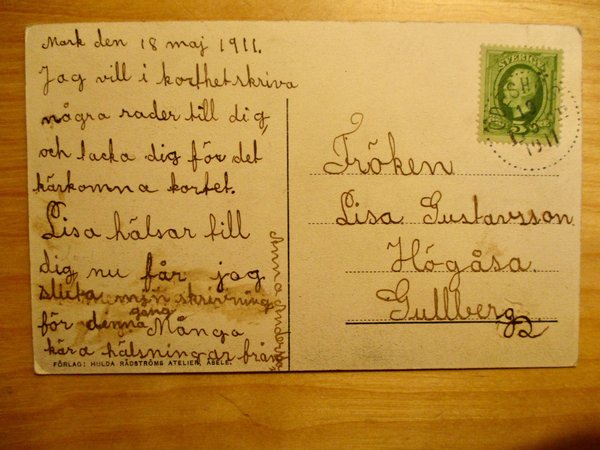 Mark den 18 maj 1911.
Jag vill i korthet skriva
några rader till dig,
och tacka dig för det
kärkomna kortet.
Lisa hälsar till
dig nu får jag
sluta min skrivning
för denna gång Många
kära hälsningar från
Anna
FÖRLAG: HULDA RÅDSTRÖMS ATELIER, ÅSELE.
SVERIGE
5
1911
Fröken
Lisa Gustavsson
Högåsa.
Gullberg